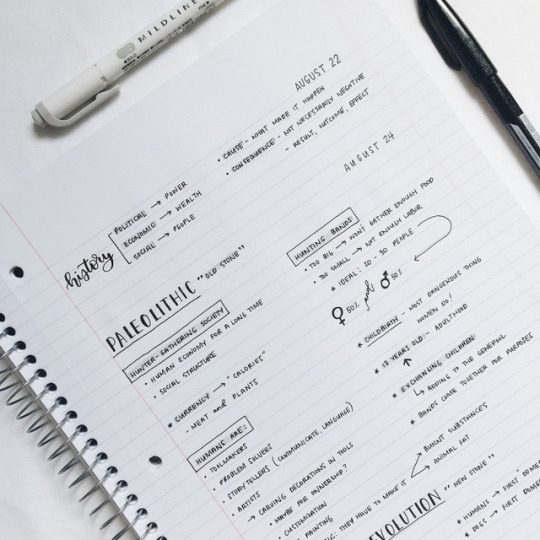 MILDLINE
AUGUST 22
• CAUSE - WHAT MADE IT HAPPEN
• CONSEQUENCE - NOT NECESSARILY NEGATIVE
- RESULT, OUTCOME, EFFECT
AUGUST 24
history
POLITICAL → POWER
ECONOMIC → WEALTH
SOCIAL → PEOPLE
PALEOLITHIC "OLD STONE"
HUNTER-GATHERING SOCIETY
• HUMAN ECONOMY FOR A LONG TIME
• SOCIAL STRUCTURE
* CURRENCY → "CALORIES"
- MEAT and PLANTS
HUMANS ARE:
• TOOLMAKERS
• PROBLEM SOLVERS
• STORYTELLERS (COMMUNICATE, LANGUAGE)
• ARTISTS
→ CARVING DECORATIONS IN TOOLS
• MAYBE FOR OWNERSHIP?
• CUSTOMIZATION
PAINTING
THEY HAVE TO MAKE IT
BURNT SUBSTANCES
ANIMAL FAT
HUNTING BANDS
• TOO BIG → WON'T GATHER ENOUGH FOOD
• TOO SMALL → NOT ENOUGH LABOR
* IDEAL: 20 - 30 PEOPLE
♀ 50% and ♂ 50%
* CHILDBIRTH - MOST DANGEROUS THING
WOMEN DO!
* 13 YEARS OLD - ADULTHOOD
↑
* EXCHANGING CHILDREN
↳ ADDING TO THE GENEPOOL
* BANDS COME TOGETHER FOR PURPOSES
EVOLUTION "NEW STONE"
* HUMANS → FIRST
* DOGS → FIRST